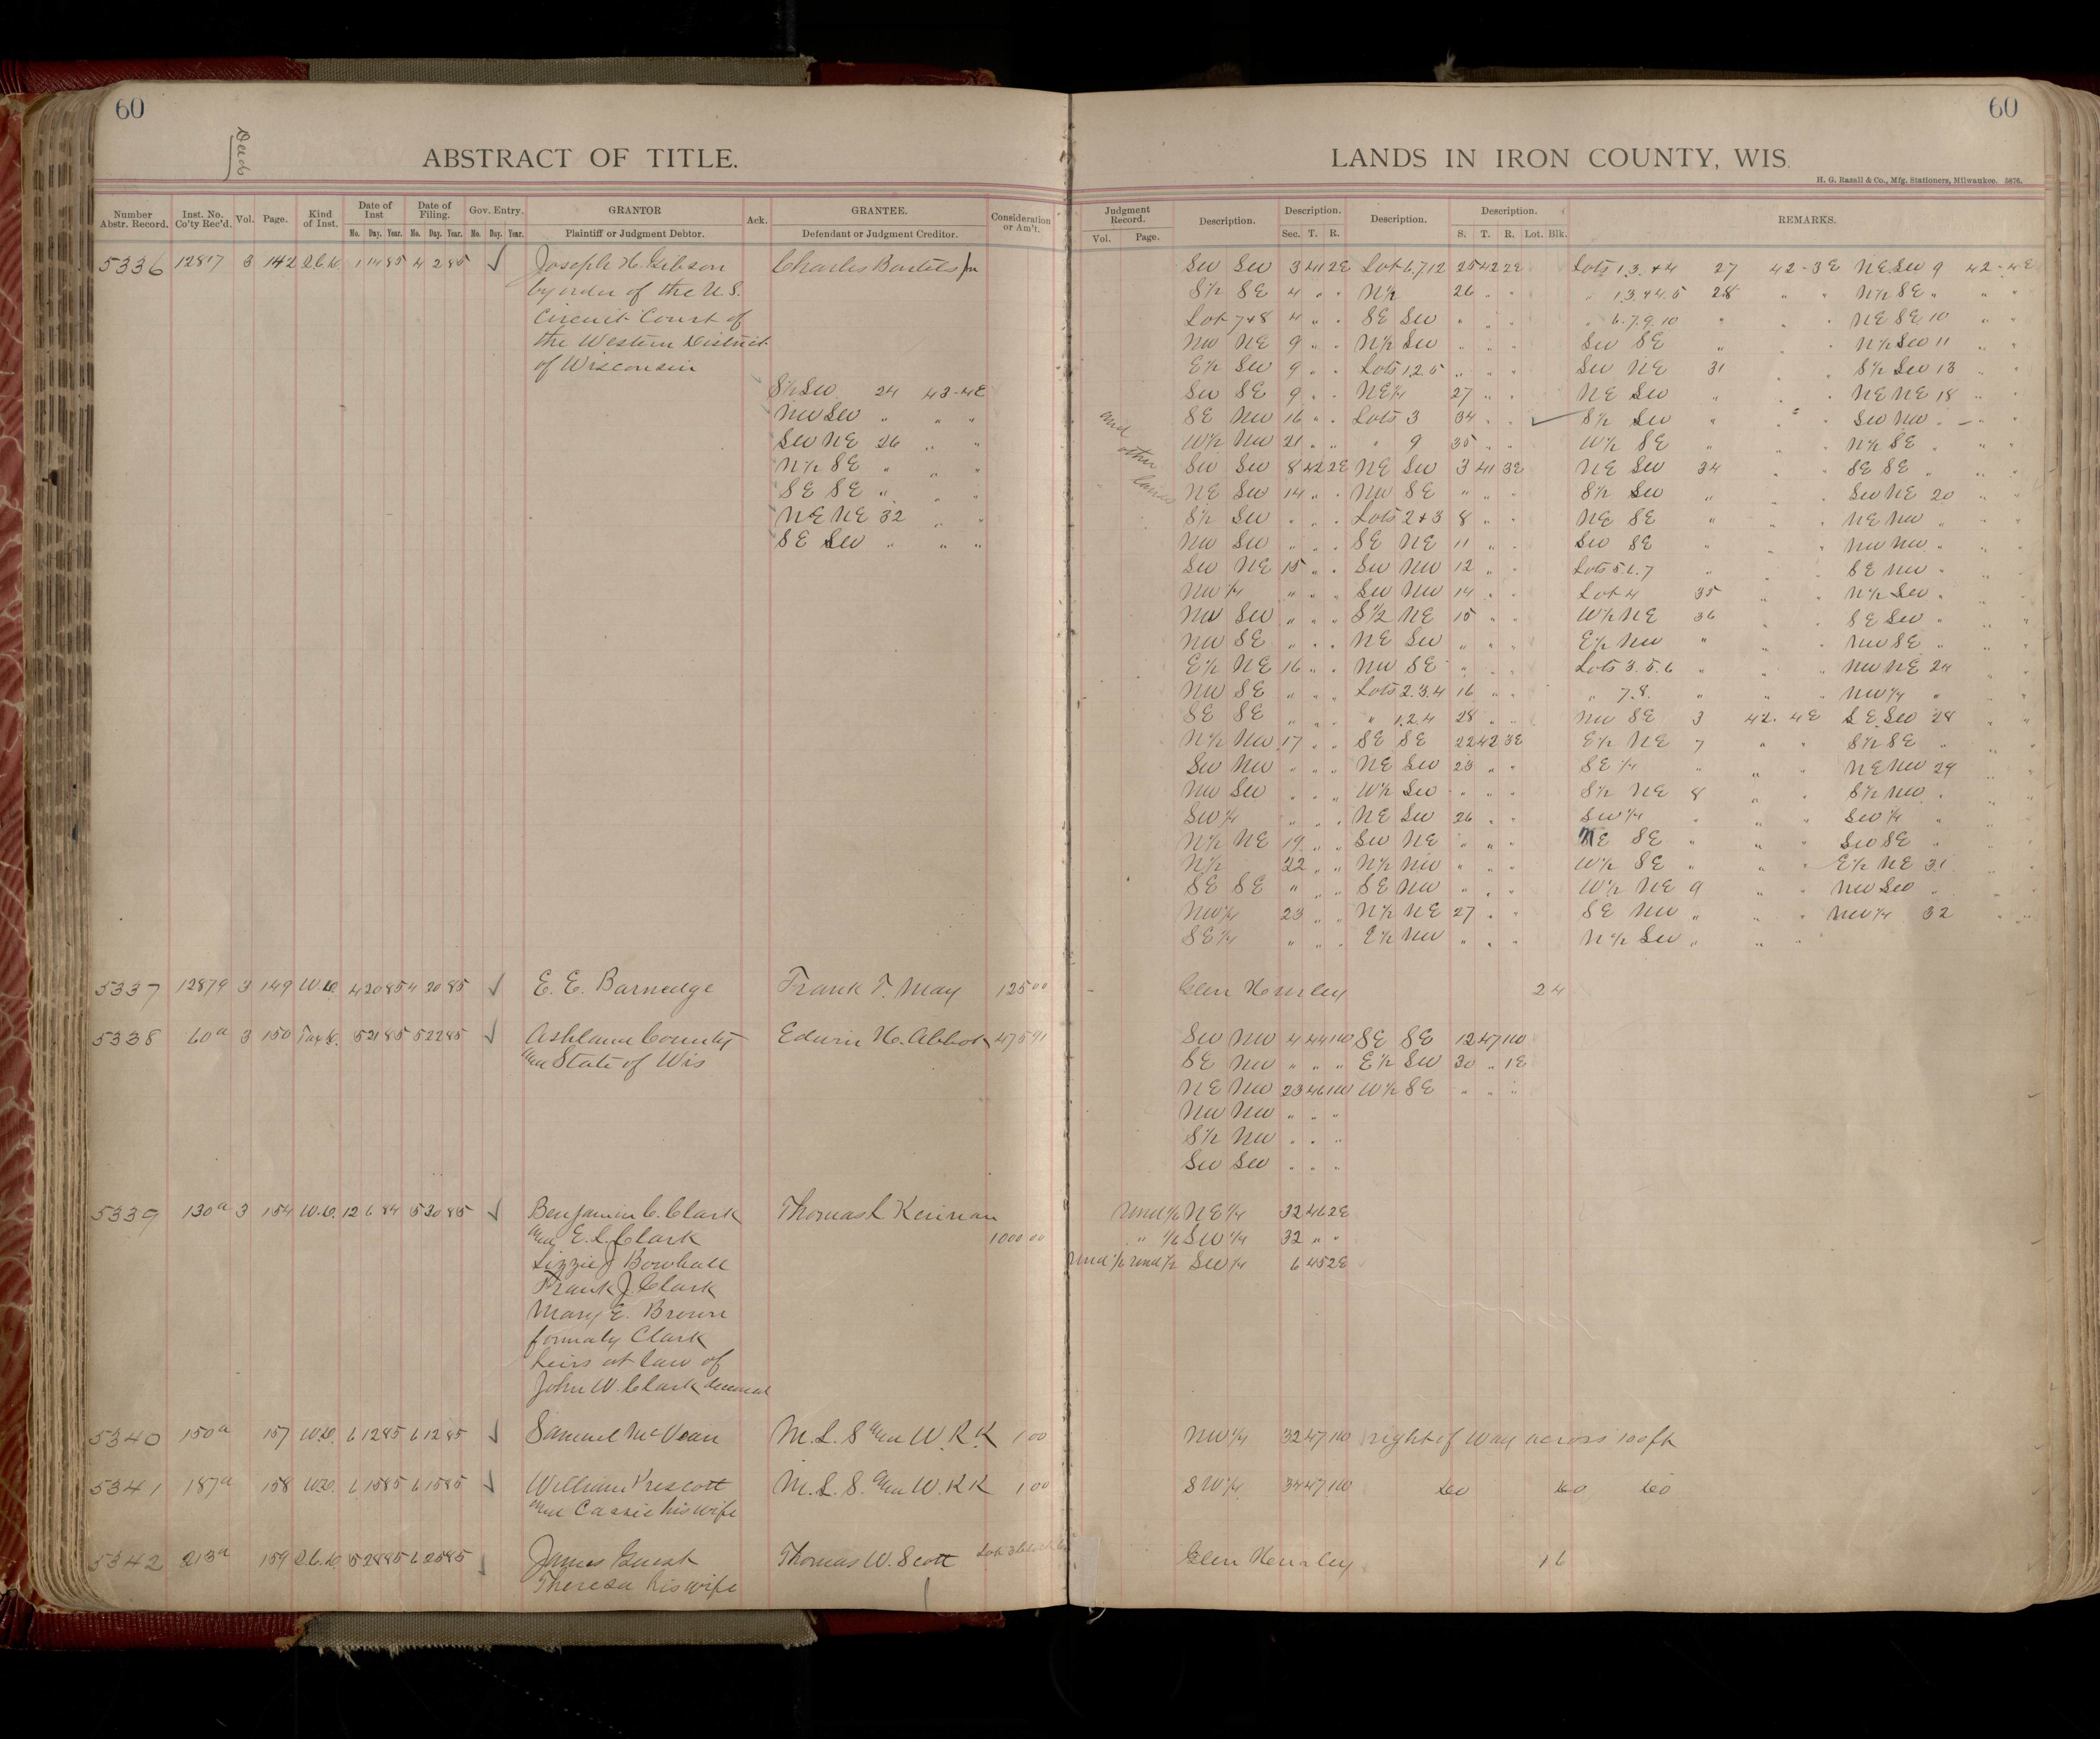 60
Deeds
ABSTRACT OF TITLE.
Number Abstr. Record. Inst. No. Co'ty Rec'd. Vol. Page. Kind of Inst. Date of Inst Date of Filing. Gov. Entry. GRANTOR Ack. GRANTEE. Consideration or Am't.
No. Day. Year. No. Day. Year. No. Day. Year. Plaintiff or Judgment Debtor. Defendant or Judgment Creditor.
5336 12817 3 142 2.C.D. 1 14 85 4 2 85 ✓ Joseph H. Gibson Charles Bartels Jr
by order of the U.S.
Circuit Court of
the Western District
of Wisconsin
S½ SW 24 43-4E
NW SW " " "
SW NE 26 " "
N½ SE " " "
SE SE " " "
NE NE 32 " "
SE SW " " "
5337 12879 3 149 W.D. 4 20 85 4 20 85 ✓ E. E. Barnedge Frank T. May 125 00
5338 60a 3 150 Tax D. 5 21 85 5 22 85 ✓ Ashland County Edwin H. Abbot 475 91
and State of Wis
5339 130a 3 154 W.D. 12 6 84 5 30 85 ✓ Benjamin C. Clark Thomas L Kennan
and E. L. Clark 1000 00
Lizzie J Bowhall
Frank J. Clark
Mary E. Brown
formaly Clark
heirs at law of
John W. Clark deceased
5340 150a 157 W.D. 6 12 85 6 12 85 ✓ Samuel McVean M. L. S and W. R. R 1 00
5341 187a 158 W.D. 6 15 85 6 15 85 ✓ William Prescott M. L. S. and W. R R 1 00
and Cassie his wife
5342 213a 159 2.C.D. 5 28 85 6 25 85 ✓ James Guest Thomas W. Scott
Theresa his wife
60
LANDS IN IRON COUNTY, WIS.
H. G. Razall & Co., Mfg. Stationers, Milwaukee. 5876.
Judgment Record. Description. Description. Description. Description. REMARKS.
Vol. Page. Sec. T. R. S. T. R. Lot. Blk.
and other lands
SW SW 3 41 2E Lot 6,7,12 25 42 2E Lots 1.3.+4 27 42-3E NE SW 9 42-4E
S½ SE 4 " " N½ 26 " " " 1.3.44.5 28 " " N½ SE " " "
Lot 7+8 4 " " SE SW " " " " 6.7.9.10 " " " NE SE 10 " "
NW NE 9 " " N½ SW " " " SW SE " " " N½ SW 11 " "
E½ SW 9 " " Lots 1.2.5 " " " SW NE 31 " " S½ SW 13 " "
SW SE 9 " " NE¼ 27 " " NE SW " " " NE NE 18 " "
SE NW 16 " " Lots 3 34 " " ✓ S½ SW " " " SW NW " " "
W½ NW 21 " " " 9 35 " " W½ SE " " " N½ SE " " "
SW SW 8 42 2E NE SW 3 41 3E NE SW 34 " " SE SE " " "
NE SW 14 " " NW SE " " " S½ SW " " " SW NE 20 " "
S½ SW " " " Lots 2+3 8 " " NE SE " " " NE NW " " "
NW SW " " " SE NE 11 " " SW SE " " " NW NW " " "
SW NE 15 " " SW NW 12 " " Lots 5.6.7 " " " SE NW " " "
NW¼ " " " SW NW 14 " " Lot 4 35 " " N½ SW " " "
NW SW " " " S½ NE 15 " " W½ NE 36 " " SE SW " " "
NW SE " " " NE SW " " " E½ NW " " " NW SE " " "
E½ NE 16 " " NW SE " " " Lots 3.5.6 " " " NW NE 24 " "
NW SE " " " Lots 2.3.4 16 " " " 7.8. " " " NW¼ " " "
SE SE " " " " 1.2.4 28 " " NW SE 3 42. 4E SE SW 28 " "
N½ NW 17 " " SE SE 22 42 3E E½ NE 7 " " S½ SE " " "
SW NW " " " NE SW 23 " " SE¼ " " " NE NW 29 " "
NW SW " " " W½ SW " " " S½ NE 8 " " S½ NW " " "
SW¼ " " " NE SW 26 " " SW¼ " " " SW¼ " " "
N½ NE 19 " " SW NE " " " NE SE " " " SW SE " " "
N½ 22 " " N½ NW " " " W½ SE " " " E½ NE 31 " "
SE SE " " " SE NW " " " W½ NE 9 " " NW SW " " "
NW¼ 23 " " N½ NE 27 " " SE NW " " " NW¼ 32 " "
SE¼ " " " E½ NW " " " N½ SW " " "
Glen Hurley 24
SW NW 4 44 1W SE SE 12 47 1W
SE NW " " " E½ SW 30 " 1E
NE NW 23 46 1W W½ SE " " "
NW NW " " "
S½ NW " " "
SW SW " " "
Und 1/6 NE¼ 32 46 2E
" 1/6 SW¼ 32 " "
Und ½ und ½ SW¼ 6 45 2E
NW¼ 32 47 1W right of Way across 100 ft
SW¼ 34 47 1W do do do
Glen Hurley 16